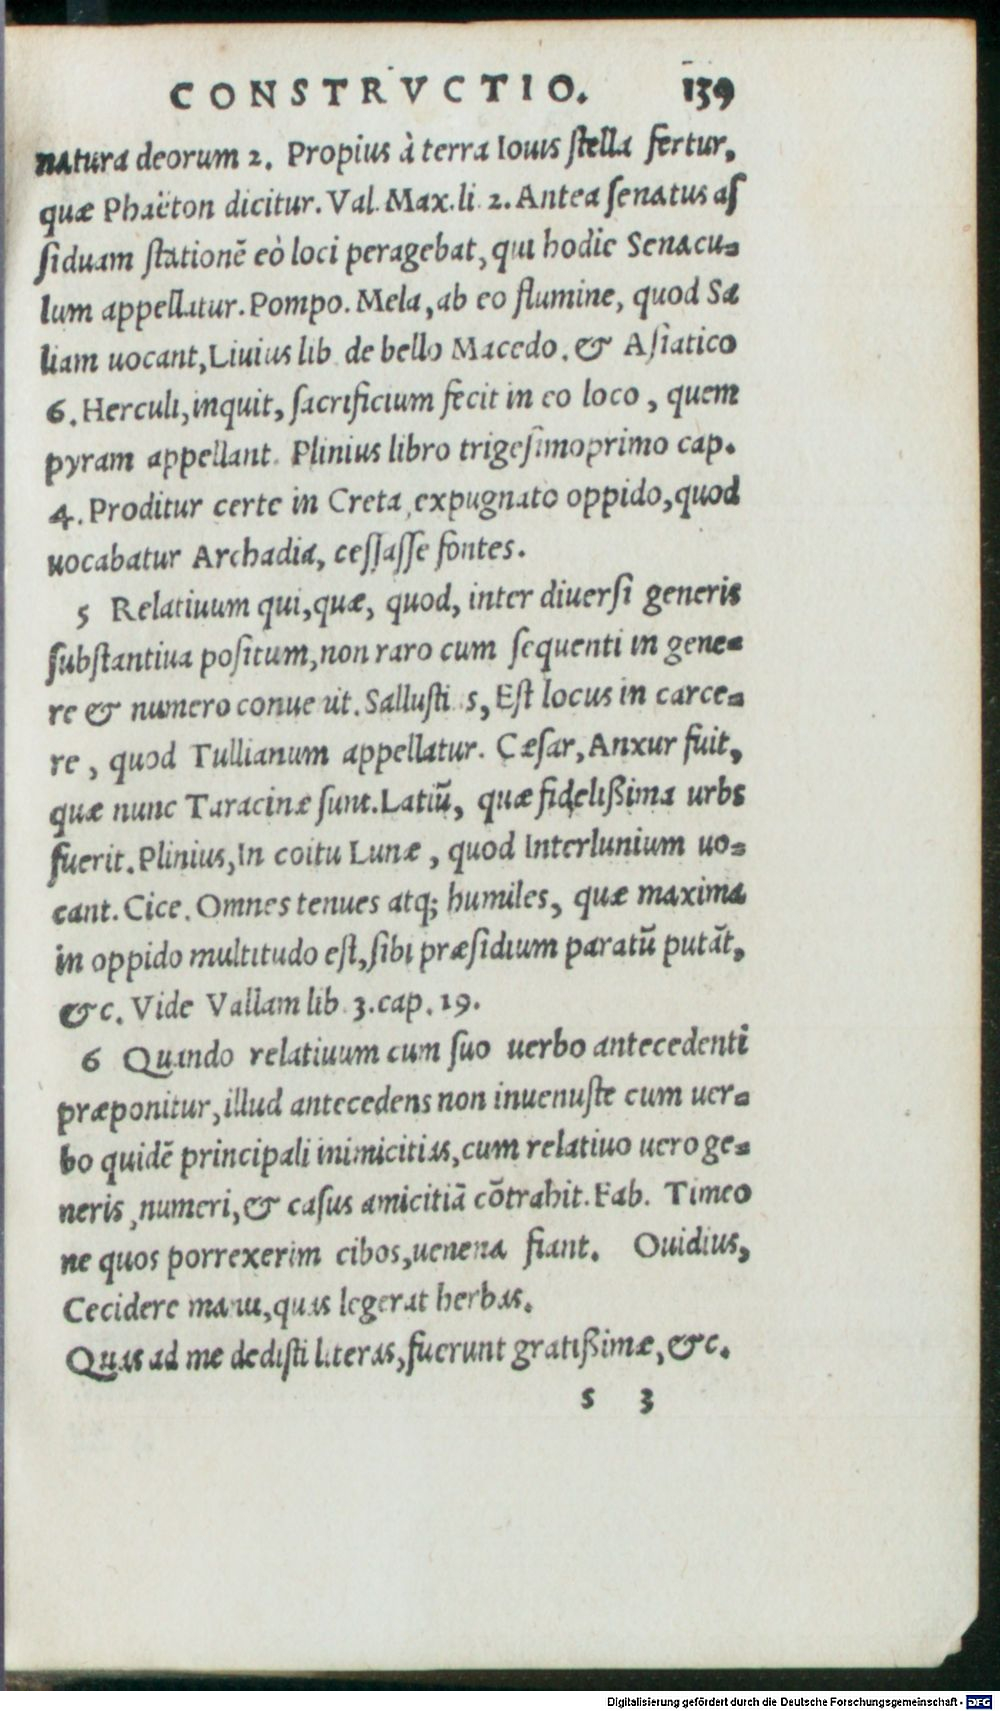 CONSTRVCTIO. 139
natura deorum 2. Propius à terra Iouis ſtella fertur,
quæ Phaëton dicitur. Val. Max. li. 2. Antea ſenatus aſ
ſiduam ſtationē eò loci peragebat, qui hodie Senacu-
lum appellatur. Pompo. Mela, ab eo flumine, quod Sa
liam uocant, Liuius lib. de bello Macedo. & Aſiatico
6. Herculi, inquit, ſacrificium fecit in eo loco, quem
pyram appellant. Plinius libro trigeſimoprimo cap.
4. Proditur certe in Creta expugnato oppido, quod
uocabatur Archadia, ceſſaſſe fontes.
5 Relatiuum qui, quæ, quod, inter diuerſi generis
ſubſtantiua poſitum, non raro cum ſequenti in gene-
re & numero conuenit. Salluſti s, Eſt locus in carce-
re, quod Tullianum appellatur. Cæſar, Anxur fuit,
quæ nunc Taracinæ ſunt. Latiū, quæ fideliſsima urbs
fuerit. Plinius, In coitu Lunæ, quod Interlunium uo-
cant. Cice. Omnes tenues atq; humiles, quæ maxima
in oppido multitudo eſt, ſibi præſidium paratū putāt,
&c. Vide Vallam lib. 3. cap. 19.
6 Quando relatiuum cum ſuo uerbo antecedenti
præponitur, illud antecedens non inuenuſte cum uer-
bo quidē principali inimicitias, cum relatiuo uero ge-
neris, numeri, & caſus amicitiā cōtrahit. Fab. Timeo
ne quos porrexerim cibos, uenena fiant. Ouidius,
Cecidere manu, quas legerat herbas.
Quas ad me dediſti literas, fuerunt gratiſsimæ, &c.
s 3
Digitalisierung gefördert durch die Deutsche Forschungsgemeinschaft - DFG